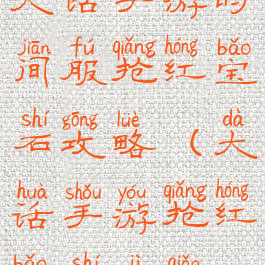 话手游
jiān fú qiǎng hóng bǎo
间服抢红宝
shí gōng lüè dà
石攻略（大
huà shǒu yóu qiǎng hóng
话手游抢红
bǎo shí jì qiǎo